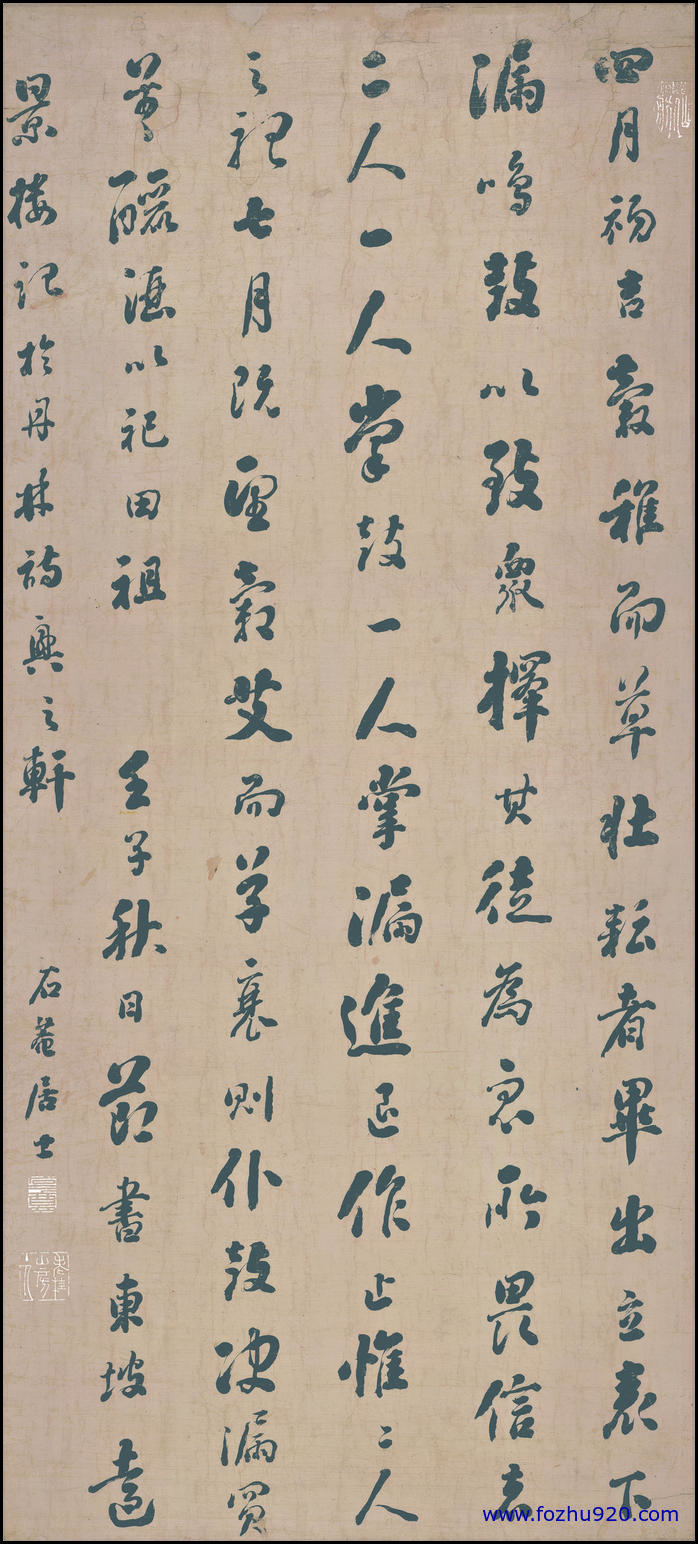 四月初吉穀稚而草壯耘者畢出立表下
漏鳴鼓以致眾擇其徒為眾所畏信者
二人一人掌鼓一人掌漏進退作止惟二人
之視七月既望穀艾而草衰則仆鼓决漏買
羊釃酒以祀田祖 壬子秋日節書東坡遠
景樓記於丹林詩興之軒
石菴居士
www.fozhu920.com